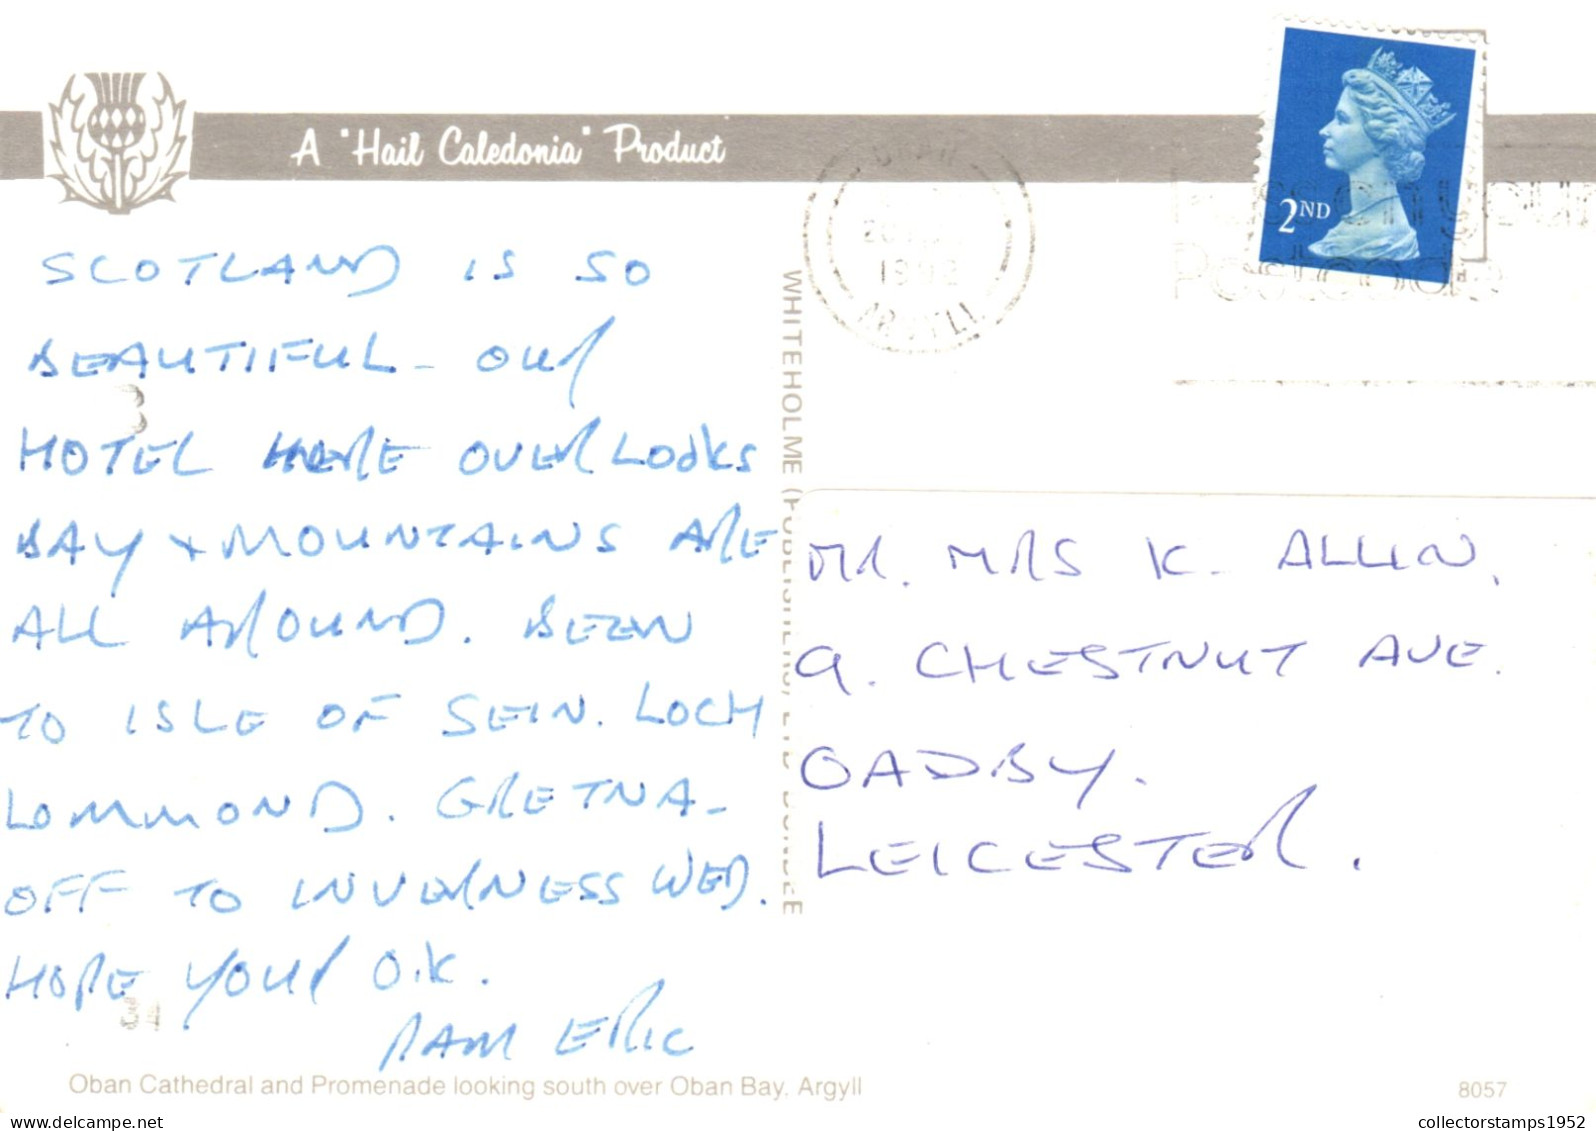 A "Hail Caledonia" Product
2ND
1992
ARGYLL
Postcode
SCOTLAND IS SO
BEAUTIFUL - OUR
HOTEL HERE OVERLOOKS
BAY + MOUNTAINS ARE
ALL AROUND. BEEN
TO ISLE OF SEIN. LOCH
LOMMOND. GRETNA -
OFF TO INVERNESS WED.
HOPE YOUR O.K.
PAM ERIC
WHITEHOLME (PUBLISHERS) LTD DUNDEE
MR. MRS K. ALLIN.
9. CHESTNUT AVE.
OADBY.
LEICESTER.
Oban Cathedral and Promenade looking south over Oban Bay, Argyll
8057
collectorstamps1952